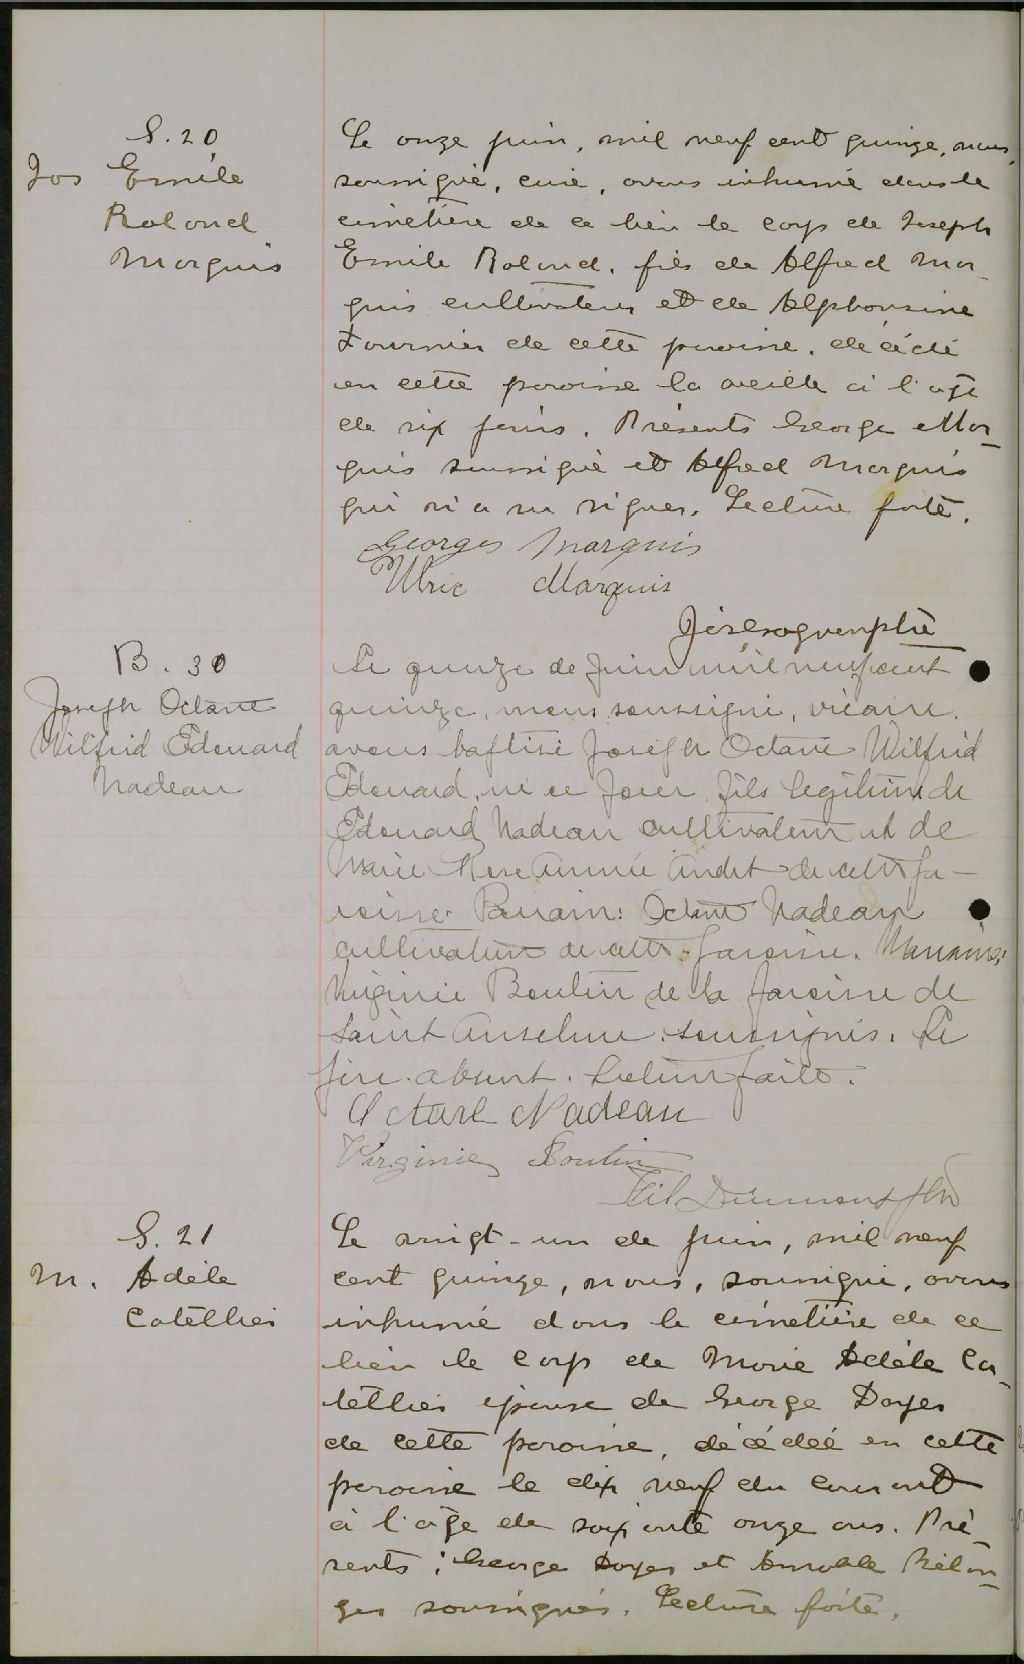 S. 20
Jos Emile
Roland
Marquis
Le onze juin, mil neuf cent quinze, nous,
soussigné, curé, avons inhumé dans le
cimetière de ce lieu le corps de Joseph
Emile Roland, fils de Alfred Mar-
quis cultivateur et de Alphonsine
Fournier de cette paroisse, décédé
en cette paroisse la veille à l'âge
de six jours. Présents George Mar-
quis soussigné et Alfred Marquis
qui n'a su signer. Lecture faite.
Georges Marquis
Ulric Marquis
ptre
B. 30
Joseph Octave
Wilfrid Edouard
Nadeau
Le quinze de Juin mil neuf cent
quinze, nous soussigné, vicaire,
avons baptisé Joseph Octave Wilfrid
Edouard, né ce jour, fils légitime de
Edouard Nadeau cultivateur et de
Marie Rose Annie Audet de cette pa-
roisse. Parrain: Octave Nadeau
cultivateur de cette paroisse. Marraine:
Virginie Boutin de la paroisse de
Saint Anselme soussignés. Le
père absent. Lecture faite.
Octave Nadeau
Virginie Boutin
S. 21
M. Adèle
Catellier
Le vingt-un de juin, mil neuf
cent quinze, nous, soussigné, avons
inhumé dans le cimetière de ce
lieu le corps de Marie Adèle Ca-
tellier épouse de George Doyer
de cette paroisse, décédée en cette
paroisse le dix neuf du courant
à l'âge de soixante onze ans. Pré-
sents: George Doyer et Amable Bélan-
ger soussignés. Lecture faite.